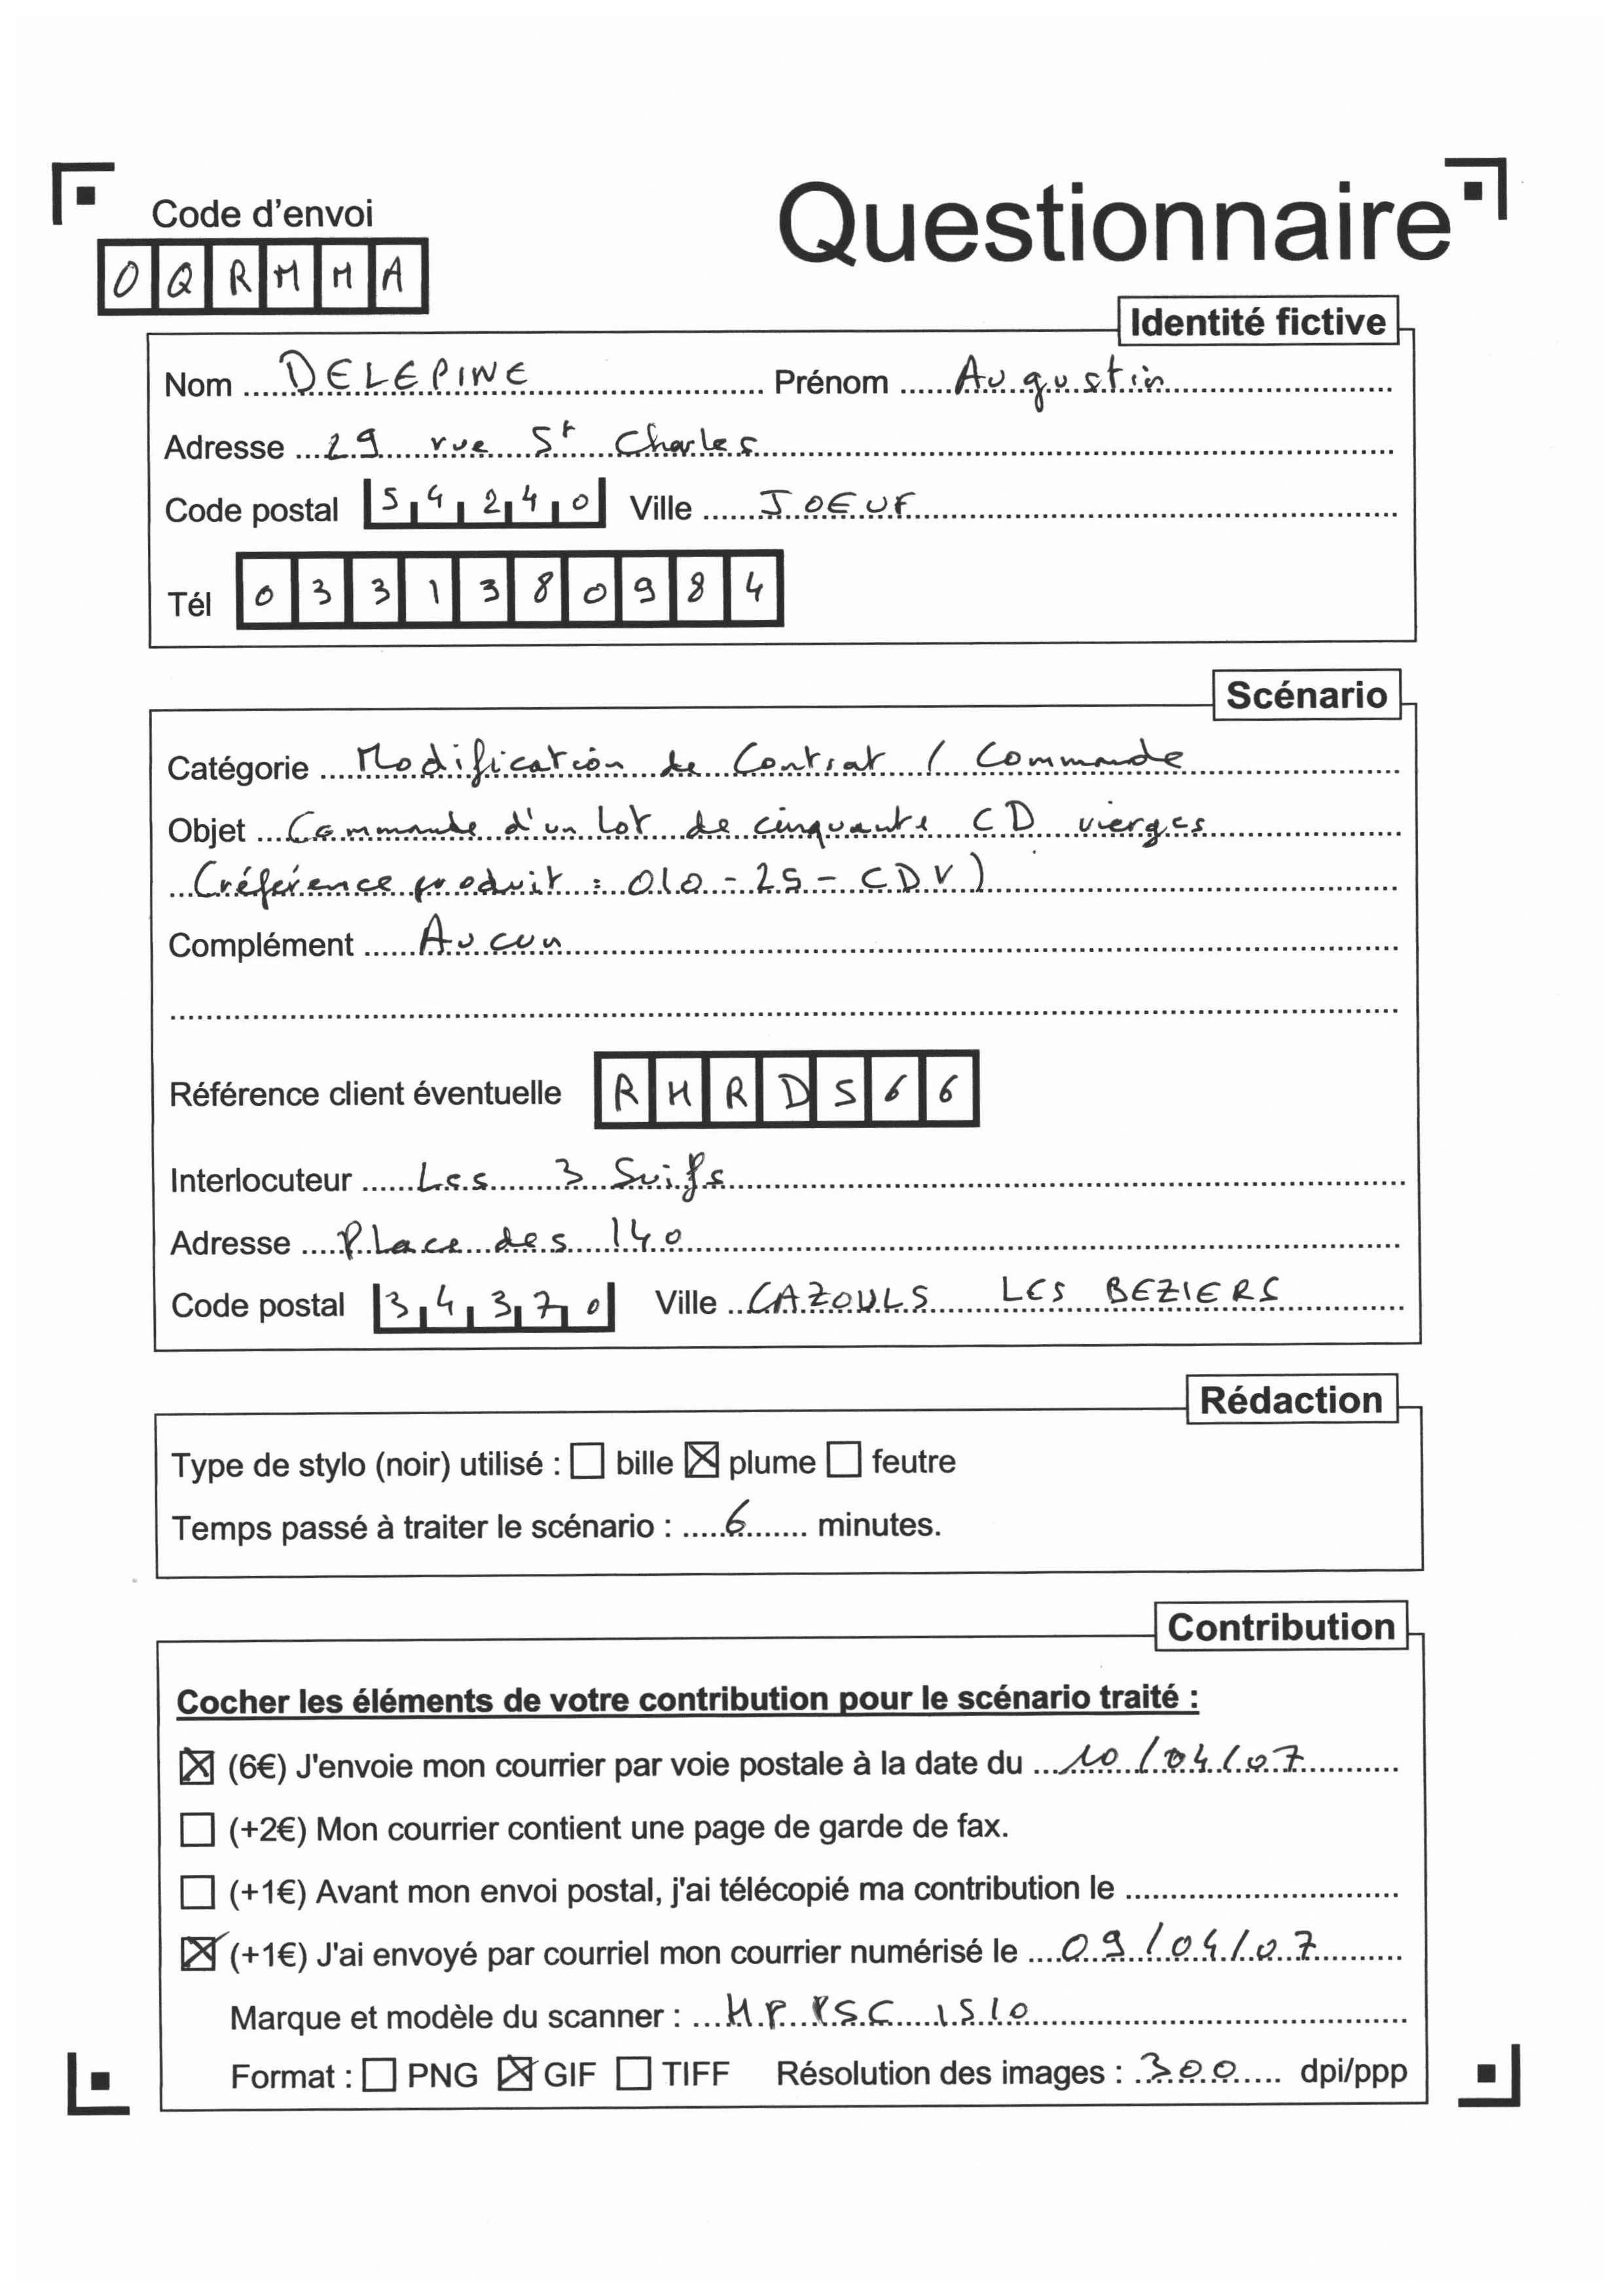 Code d'envoi
Questionnaire
OQRMMA
Identité fictive
Nom DELEPINE Prénom Augustin
Adresse 29 rue St Charles
Code postal 54240 Ville JOEUF
Tél 0331380984
Scénario
Catégorie Modification de Contrat / Commande
Objet Commande d'un lot de cinquante CD vierges
(référence produit : 010-25-CDV)
Complément Aucun
Référence client éventuelle RHRDS66
Interlocuteur Les 3 Suifs
Adresse Place des 140
Code postal 34370 Ville CAZOULS LES BEZIERS
Rédaction
Type de stylo (noir) utilisé : ☐ bille ☒ plume ☐ feutre
Temps passé à traiter le scénario : 6 minutes.
Contribution
Cocher les éléments de votre contribution pour le scénario traité :
☒ (6€) J'envoie mon courrier par voie postale à la date du 10/04/07
☐ (+2€) Mon courrier contient une page de garde de fax.
☐ (+1€) Avant mon envoi postal, j'ai télécopié ma contribution le
☒ (+1€) J'ai envoyé par courriel mon courrier numérisé le 09/04/07
Marque et modèle du scanner : HP PSC 1510
Format : ☐ PNG ☒ GIF ☐ TIFF Résolution des images : 300 dpi/ppp